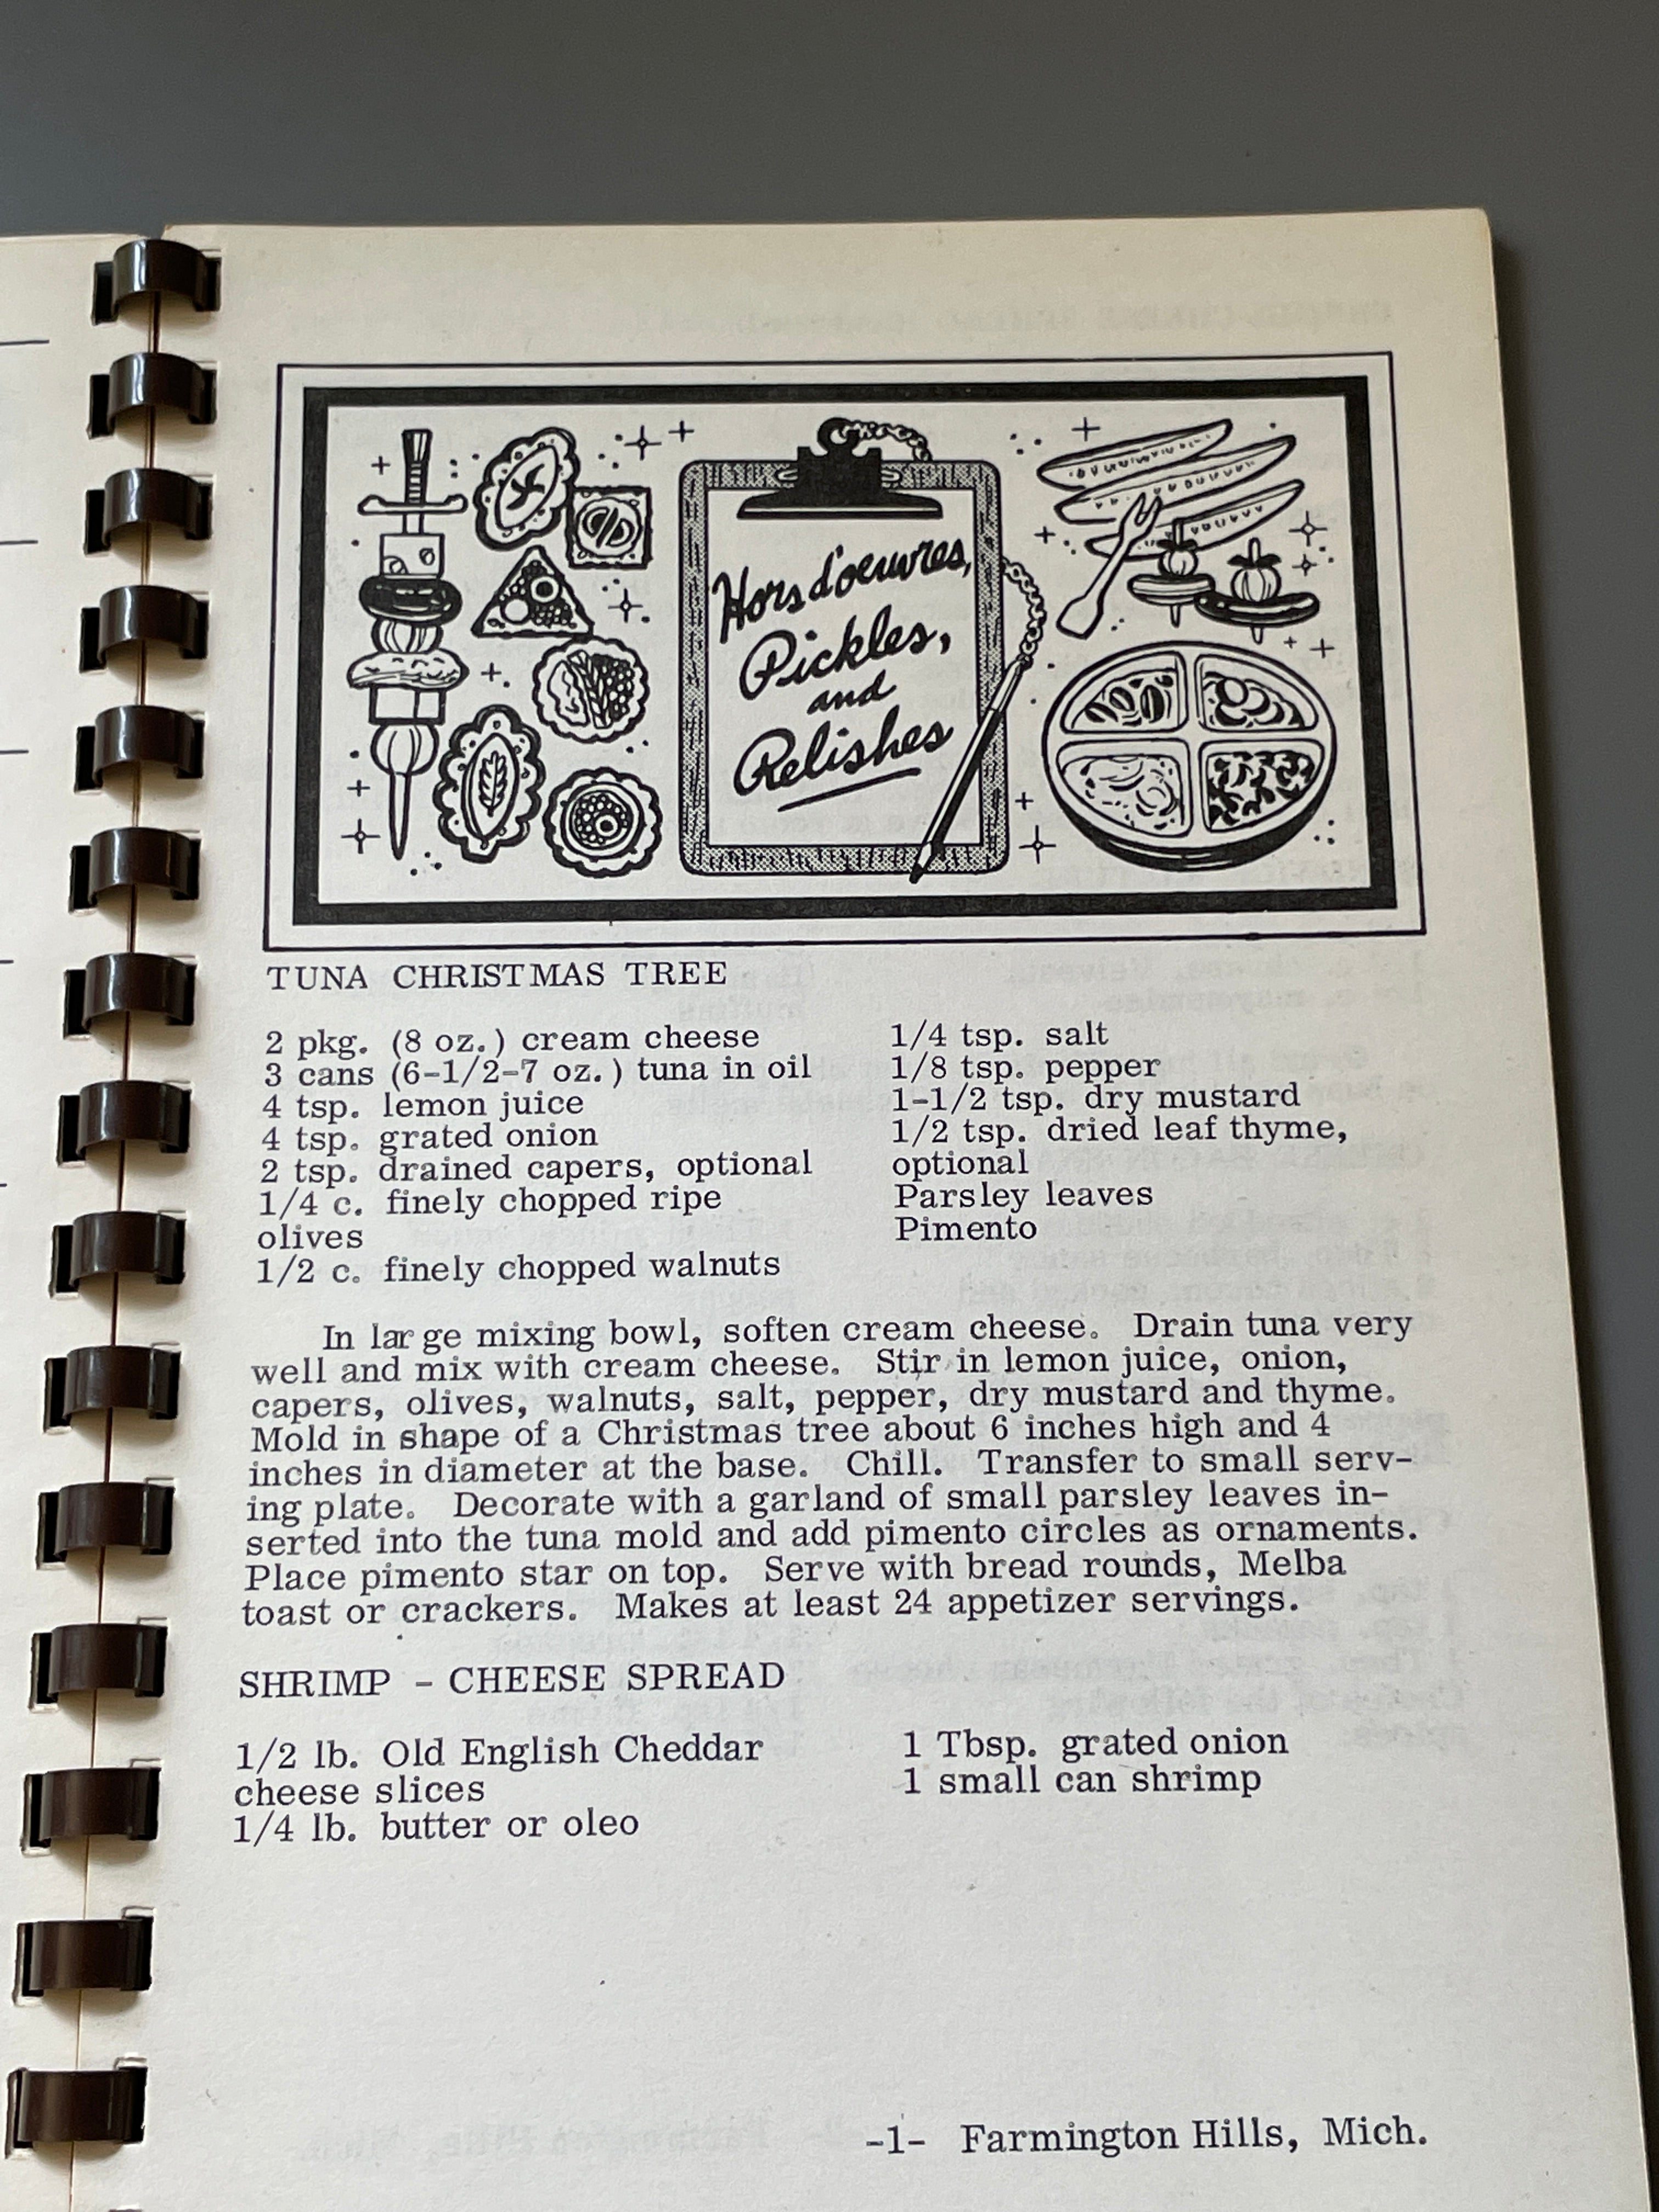 Hors d'oeuvres,
Pickles,
and
Relishes
TUNA CHRISTMAS TREE
2 pkg. (8 oz.) cream cheese
3 cans (6-1/2-7 oz.) tuna in oil
4 tsp. lemon juice
4 tsp. grated onion
2 tsp. drained capers, optional
1/4 c. finely chopped ripe
olives
1/2 c. finely chopped walnuts
1/4 tsp. salt
1/8 tsp. pepper
1-1/2 tsp. dry mustard
1/2 tsp. dried leaf thyme,
optional
Parsley leaves
Pimento
In large mixing bowl, soften cream cheese. Drain tuna very
well and mix with cream cheese. Stir in lemon juice, onion,
capers, olives, walnuts, salt, pepper, dry mustard and thyme.
Mold in shape of a Christmas tree about 6 inches high and 4
inches in diameter at the base. Chill. Transfer to small serv-
ing plate. Decorate with a garland of small parsley leaves in-
serted into the tuna mold and add pimento circles as ornaments.
Place pimento star on top. Serve with bread rounds, Melba
toast or crackers. Makes at least 24 appetizer servings.
SHRIMP - CHEESE SPREAD
1/2 lb. Old English Cheddar
cheese slices
1/4 lb. butter or oleo
1 Tbsp. grated onion
1 small can shrimp
-1- Farmington Hills, Mich.